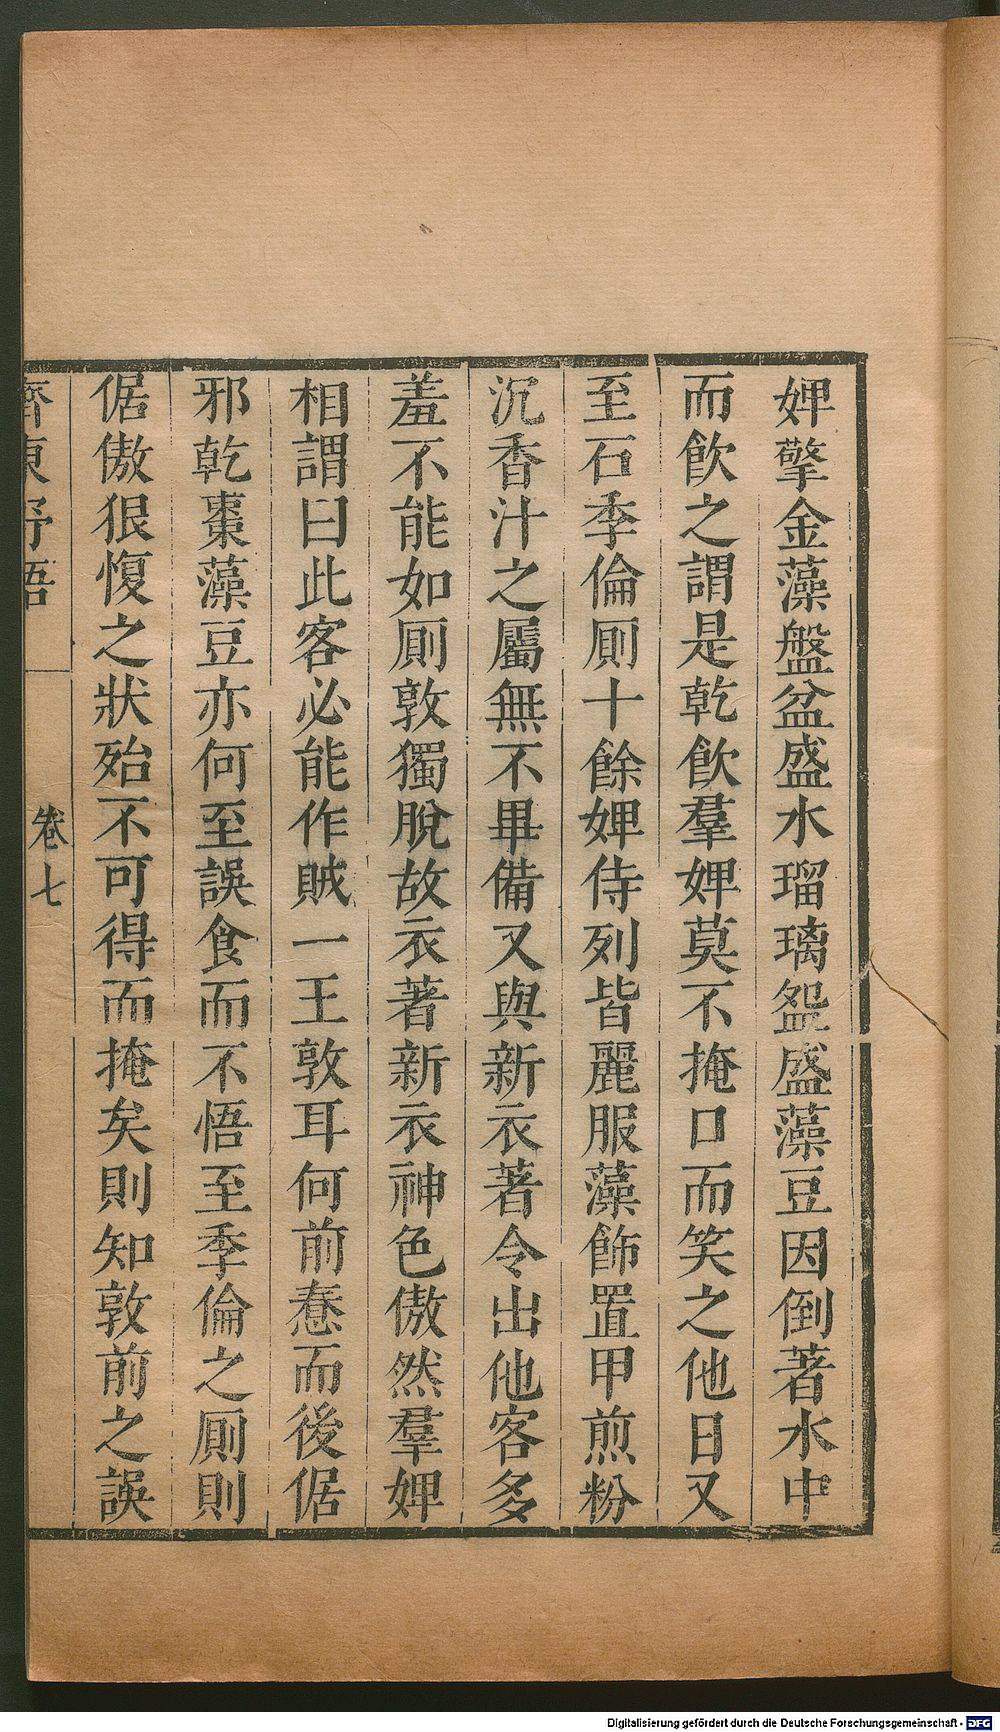 婢擎金藻盤盆盛水瑠璃盌盛藻豆因倒著水中
而飲之謂是乾飲羣婢莫不掩口而笑之他日又
至石季倫厠十餘婢侍列皆麗服藻飾置甲煎粉
沉香汁之屬無不畢備又與新衣著令出他客多
羞不能如厠敦獨脫故衣著新衣神色傲然羣婢
相謂曰此客必能作賊一王敦耳何前惷而後倨
邪乾棗藻豆亦何至誤食而不悟至季倫之厠則
倨傲狠愎之狀殆不可得而掩矣則知敦前之誤
齊東野語
卷七
Digitalisierung gefördert durch die Deutsche Forschungsgemeinschaft - DFG